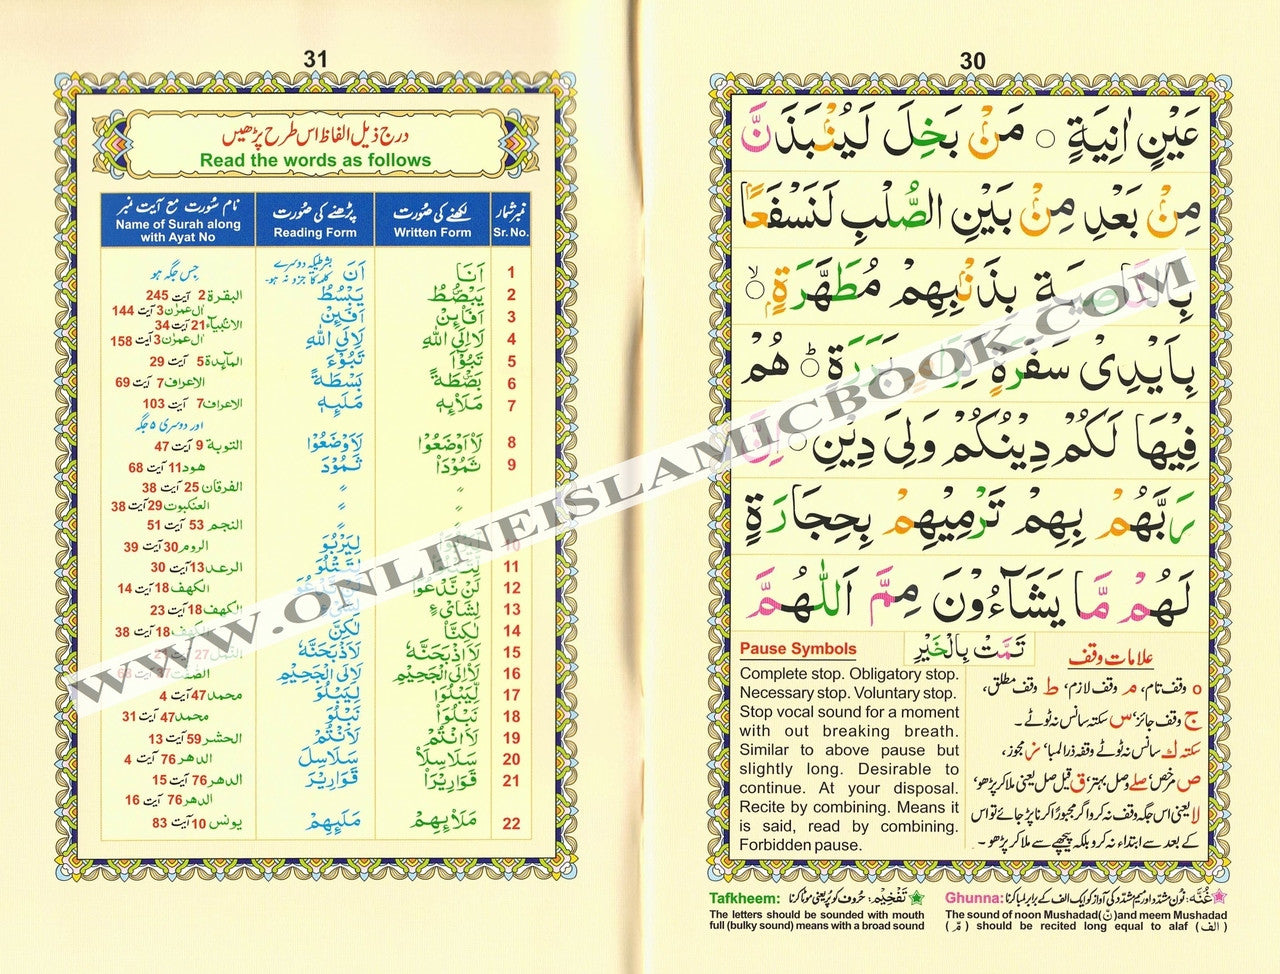 30
عَيْنٍ اٰنِيَةٍ ○ مَنْۢ بَخِلَ لَيُنْۢبَذَنَّ
مِنْۢ بَعْدِ مِنْۢ بَيْنِ الصُّلْبِ لَنَسْفَعًۢا
بِذَنْۢبِهِمْ مُطَهَّرَةٍۭ
بِاَيْدِىْ سَفَرَةٍ هُمْ
فِيْهَا لَكُمْ دِيْنُكُمْ وَلِىَ دِيْنِ ○
رَبَّهُمْ بِهِمْ تَرْمِيْهِمْ بِحِجَارَةٍ
لَهُمْ مَّا يَشَآءُوْنَ مِمَّ اَللّٰهُمَّ
تَمَّتْ بِالْخَيْرِ
علامات وقف
o وقف تام، م وقف لازم، ط وقف مطلق،
ج وقف جائز، س سکتہ سانس نہ ٹوٹے۔
سکتہ ك سانس نہ ٹوٹے وقفہ ذرا لمبا، ز مجوز،
ص مرخص، صلے وصل بہتر، ق قیل صل یعنی ملا کر پڑھو،
لا یعنی اس جگہ وقف نہ کرو اگر مجبورًا کرنا پڑ جائے تو اس
کے بعد سے ابتداء نہ کرو بلکہ پیچھے سے ملا کر پڑھو۔
Pause Symbols
Complete stop. Obligatory stop.
Necessary stop. Voluntary stop.
Stop vocal sound for a moment
with out breaking breath.
Similar to above pause but
slightly long. Desirable to
continue. At your disposal.
Recite by combining. Means it
is said, read by combining.
Forbidden pause.
Ghunna: غُنَّه: نون مشدّد اور میم مشدّد کی آواز کو ایک الف کے برابر لمبا کرنا
The sound of noon Mushadad(نّ)and meem Mushadad
(مّ) should be recited long equal to alaf (الف)
Tafkheem: تَفْخِيْم: حُروف کو پُر یعنی موٹا کرنا
The letters should be sounded with mouth
full (bulky sound) means with a broad sound
31
درج ذیل الفاظ اس طرح پڑھیں
Read the words as follows
نمبر شمار لکھنے کی صُورت پڑھنے کی صُورت نام سُورت مع آیت نمبر
Sr. No. Written Form Reading Form Name of Surah along with Ayat No
1 اَنَا اَنَ بشرطیکہ دوسرے کلمہ کا جزو نہ ہو۔ جس جگہ ہو
2 يَبْصُۜطُ يَبْسُطُ البقرة 2 آیت 245
3 اَفَا۟ئِنْ اَفَئِنْ اٰل عمرٰن 3 آیت 144
الانبیاء 21 آیت 34
4 لَا۟اِلَى اللّٰهِ لَاِلَى اللّٰهِ اٰل عمرٰن 3 آیت 158
5 تَبُوْٓاَ تَبُوْٓءَ المآئدة 5 آیت 29
6 بَصْۜطَةً بَسْطَةً الاعراف 7 آیت 69
7 مَلَا۟ئِهٖ مَلَئِهٖ الاعراف 7 آیت 103
اور دوسری ۵ جگہ
8 لَا۟اَوْضَعُوْا لَاَوْضَعُوْا التوبة 9 آیت 47
9 ثَمُوْدَا۟ ثَمُوْدَ هود 11 آیت 68
〃 〃 الفرقان 25 آیت 38
〃 〃 العنكبوت 29 آیت 38
النجم 53 آیت 51
10 لِيَرْبُوَ الروم 30 آیت 39
11 لِتَتْلُوَ الرعد 13 آیت 30
12 لَنْ نَّدْعُوَا۟ الكهف 18 آیت 14
13 لِشَا۟ىْءٍ الكهف 18 آیت 23
14 لٰكِنَّا۟ لٰكِنَّ الكهف 18 آیت 38
15 لَا۟اَذْبَحَنَّهٗ لَاَذْبَحَنَّهٗ النمل 27 آیت 21
16 لَا۟اِلَى الْجَحِيْمِ لَاِلَى الْجَحِيْمِ الصّٰفّٰت 37 آیت 68
17 لِّيَبْلُوَا۟ لِيَبْلُوَ محمد 47 آیت 4
18 نَبْلُوَا۟ نَبْلُوَ محمد 47 آیت 31
19 لَا۟اَنْتُمْ لَاَنْتُمْ الحشر 59 آیت 13
20 سَلَاسِلَا۟ سَلَاسِلَ الدهر 76 آیت 4
21 قَوَارِيْرَا۟ قَوَارِيْرَ الدهر 76 آیت 15
الدهر 76 آیت 16
22 مَلَا۟ئِهِمْ مَلَئِهِمْ یونس 10 آیت 83
WWW.ONLINEISLAMICBOOK.COM